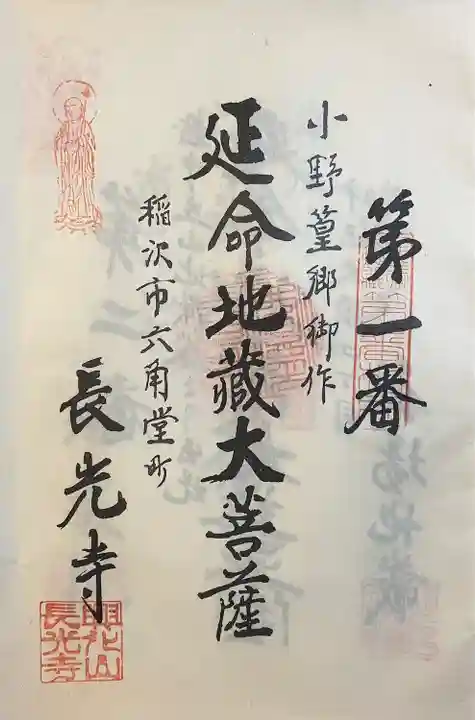 第一番
小野篁郷御作
延命地蔵大菩薩
稲沢市六角堂町
長光寺
長光寺